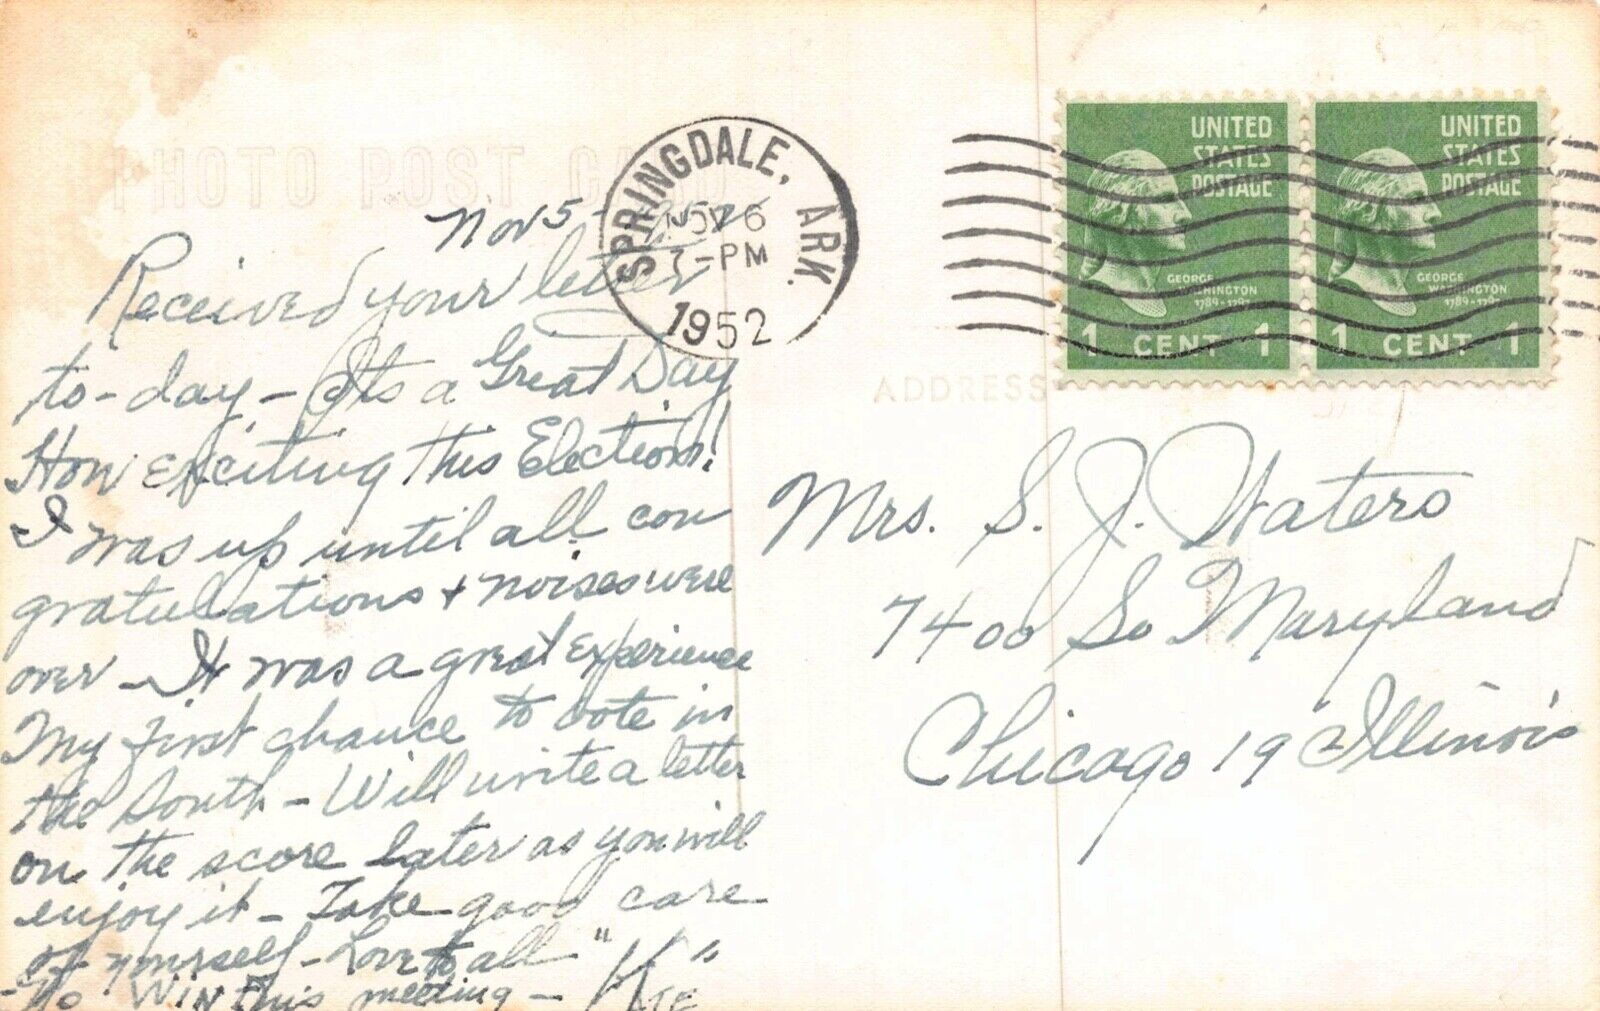 PHOTO POST CARD
SPRINGDALE, ARK.
NOV 6
7-PM
1952
UNITED STATES POSTAGE
GEORGE WASHINGTON
1789-1797
1 CENT 1
UNITED STATES POSTAGE
GEORGE WASHINGTON
1789-1797
1 CENT 1
ADDRESS
Nov 5-
Received your letter
to-day - Its a Great Day
How exciting this Election!
I was up until all con
gratulations + noises were
over - It was a great experience
My first chance to vote in
the South - Will write a letter
on the score later as you will
enjoy it - Take good care
of yourself - Love to all "K"
WIN this meeting -
Mrs. S. J. Waters
7400 So Maryland
Chicago 19 Illinois